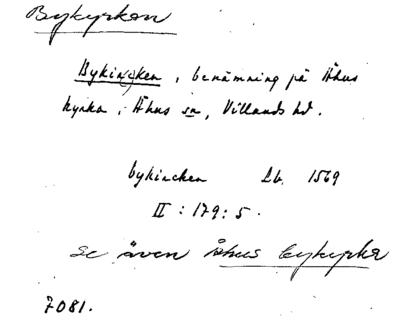 Bykyrkan
Bykircken, benämning på Åhus
kyrka, Åhus sn, Villands hd.
bykircken Lb. 1569
II : 179 : 5.
se även Åhus bykyrka
7081.